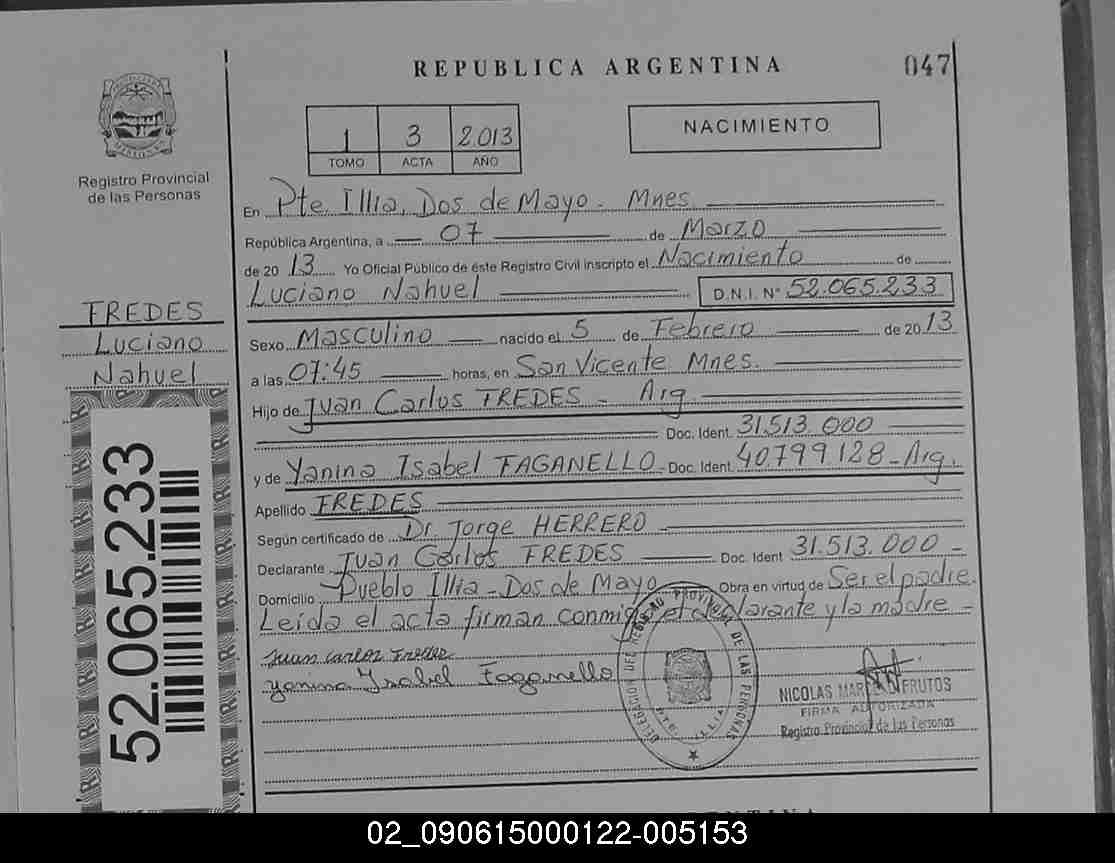 REPUBLICA ARGENTINA
047
1 3 2.013
TOMO ACTA AÑO
NACIMIENTO
Registro Provincial
de las Personas
En Pte. Illia, Dos de Mayo - Mnes
República Argentina, a 07 de Marzo
de 2013 Yo Oficial Público de éste Registro Civil inscripto el Nacimiento de
Luciano Nahuel D.N.I. N° 52.065.233
FREDES
Luciano
Nahuel
Sexo Masculino nacido el 5 de Febrero de 2013
a las 07:45 horas, en San Vicente Mnes.
Hijo de Juan Carlos FREDES - Arg.
Doc. Ident. 31.513.000
y de Yanina Isabel FAGANELLO - Doc. Ident. 40799.128 - Arg.
Apellido FREDES
Según certificado de Dr. Jorge HERRERO
Declarante Juan Carlos FREDES Doc. Ident 31.513.000 -
Domicilio Pueblo Illia - Dos de Mayo Obra en virtud de Ser el padre.
Leída el acta firman conmigo el declarante y la madre -
Juan Carlos Fredes
Yanina Ysabel Faganello
52.065.233
DELEGACION DEL REGISTRO PROVINCIAL DE LAS PERSONAS
PTE. ILLIA
FIRMA AUTORIZADA
Registro Provincial de las Personas
02_090615000122-005153